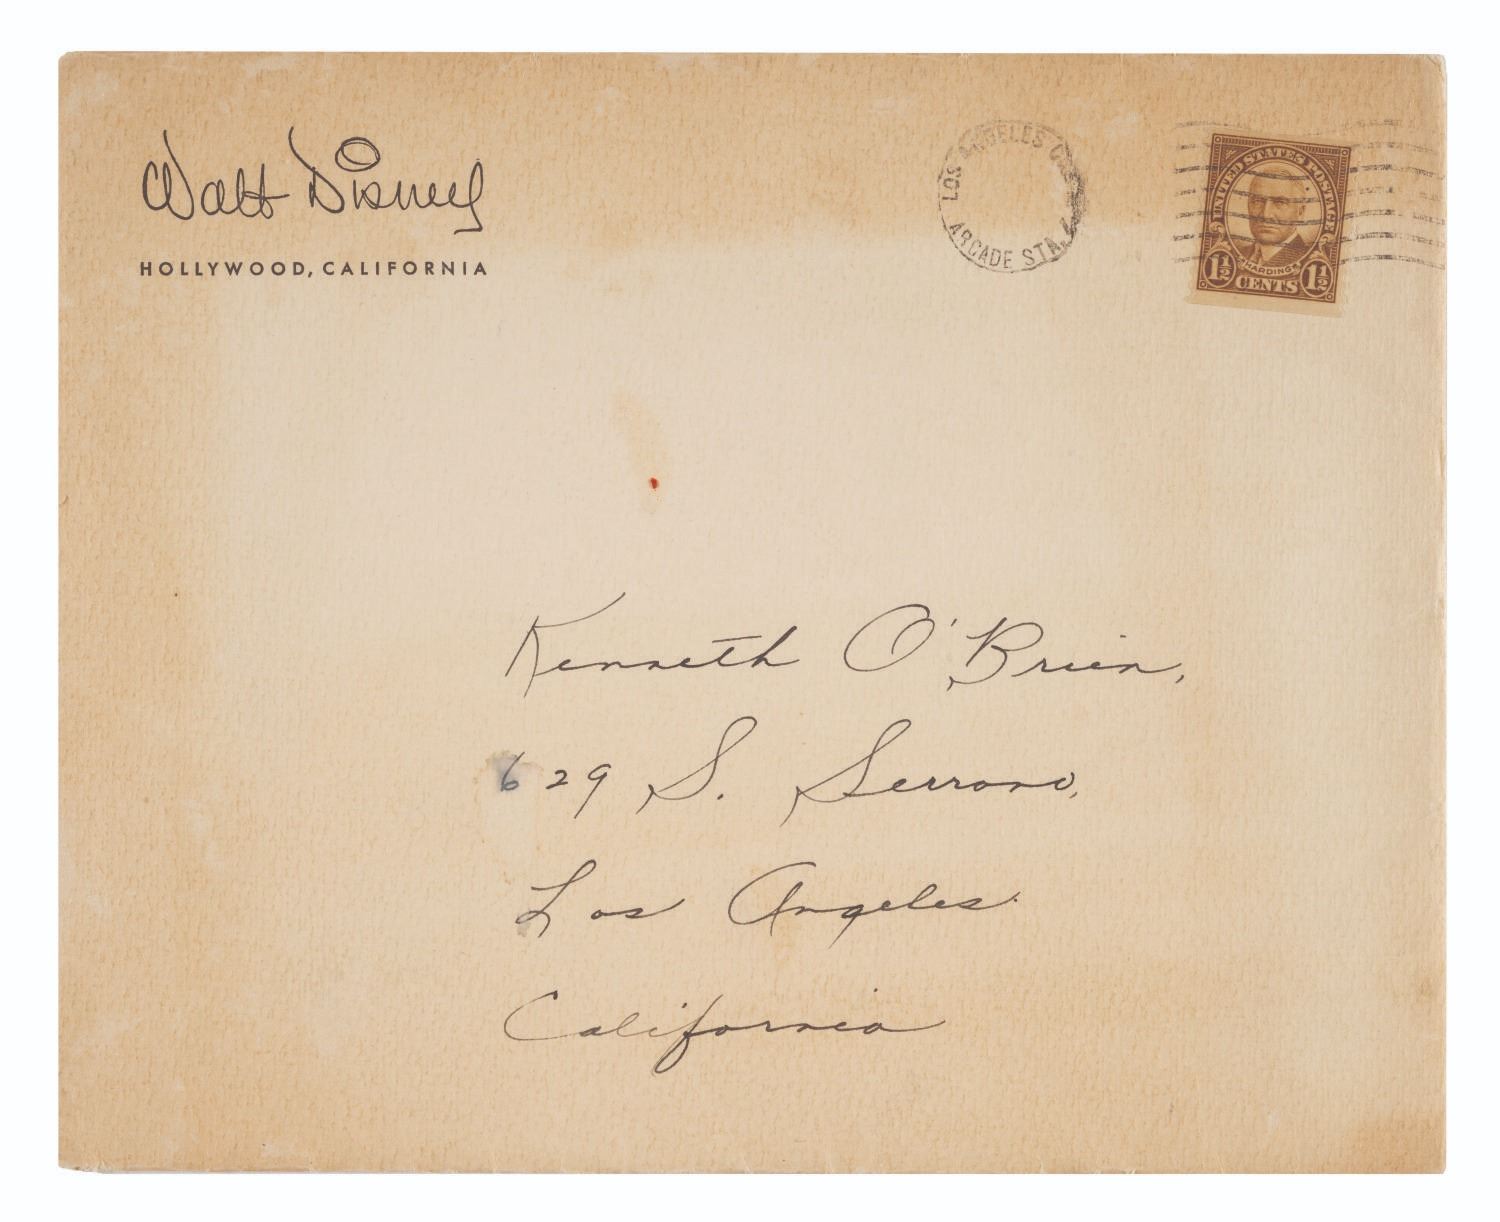 Walt Disney
HOLLYWOOD, CALIFORNIA
LOS ANGELES
ARCADE STA.
UNITED STATES POSTAGE
HARDING
1½ CENTS 1½
Kenneth O'Brien,
629 S. Serrano,
Los Angeles
California